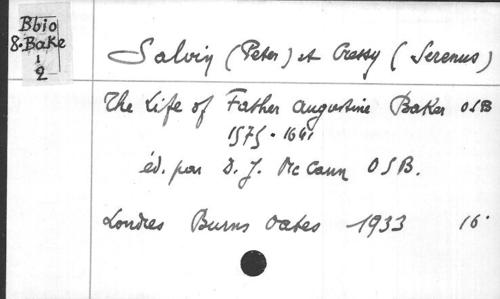 Bbio
8.Bake
1
2
Salvin (Peter) et Cressy (Serenus)
The Life of Father Augustine Baker OSB
1575-1641
éd. par D. J. McCann OSB.
Londres Burns Oates 1933 16°